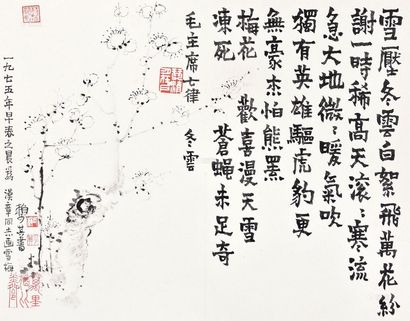 雪壓冬雲白絮飛萬花紛
謝一時稀高天滾〻寒流
急大地微〻暖氣吹
獨有英雄驅虎豹更
無豪杰怕熊羆
梅花歡喜漫天雪
凍死蒼蠅未足奇
毛主席七律 冬雲
一九七五年早春之晨爲漢章同志画雪梅